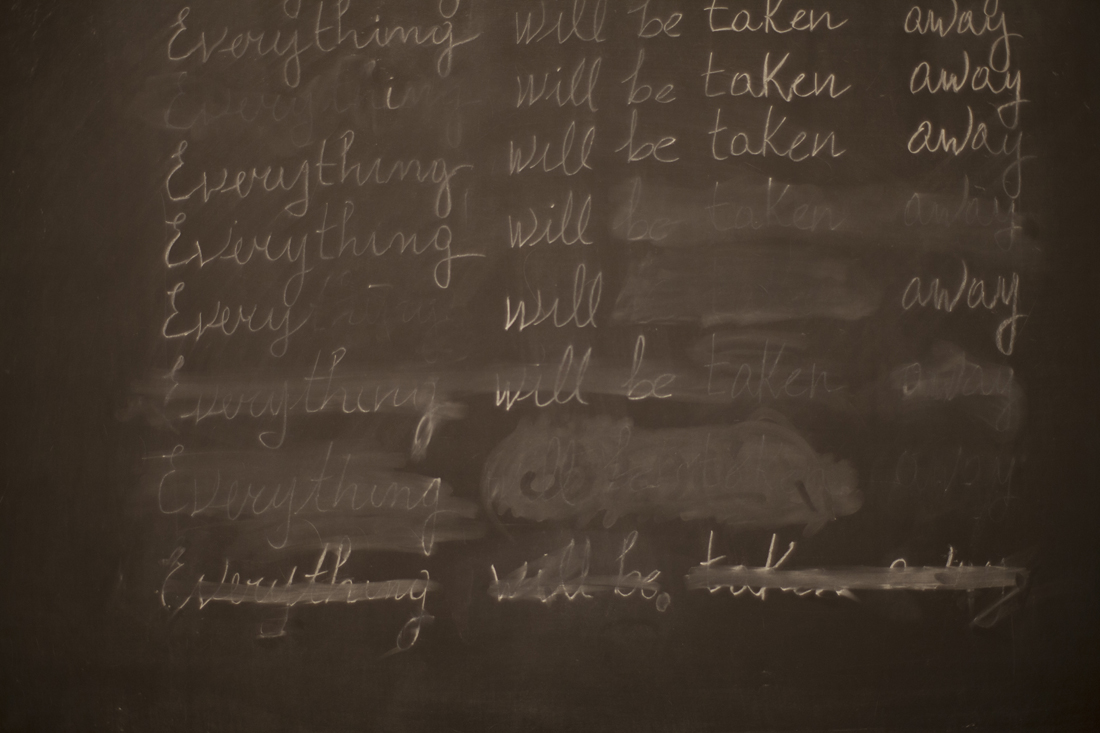 Everything will be taken away
Everything will be taken away
Everything will be taken away
Everything will be taken away
Every will away
Everything will be taken away
Everything taken away
Everything will be taken away